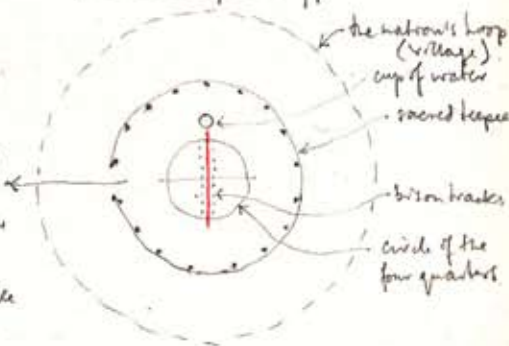 the nation's hoop
(village)
cup of water
sacred teepee
bison tracks
circle of the
four quarters